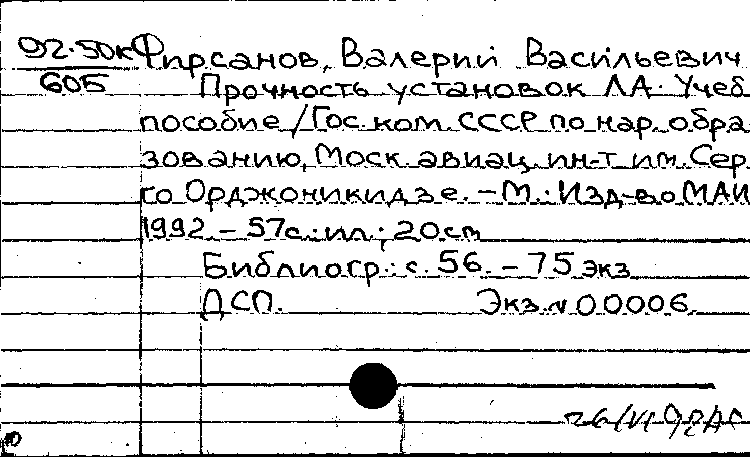 92-50к Фирсанов, Валерий Васильевич
605 Прочность установок ЛА. Учеб
пособие / Гос. ком. СССР по нар. обра
зованию, Моск. авиац. ин-т им. Сер.
го Орджоникидзе. – М.: Изд-во МАИ
1992. – 57с.: ил.; 20cm
Библиогр.: с. 56. – 75 экз
ДСП. Экз. № 00006.
26/VI 92
10